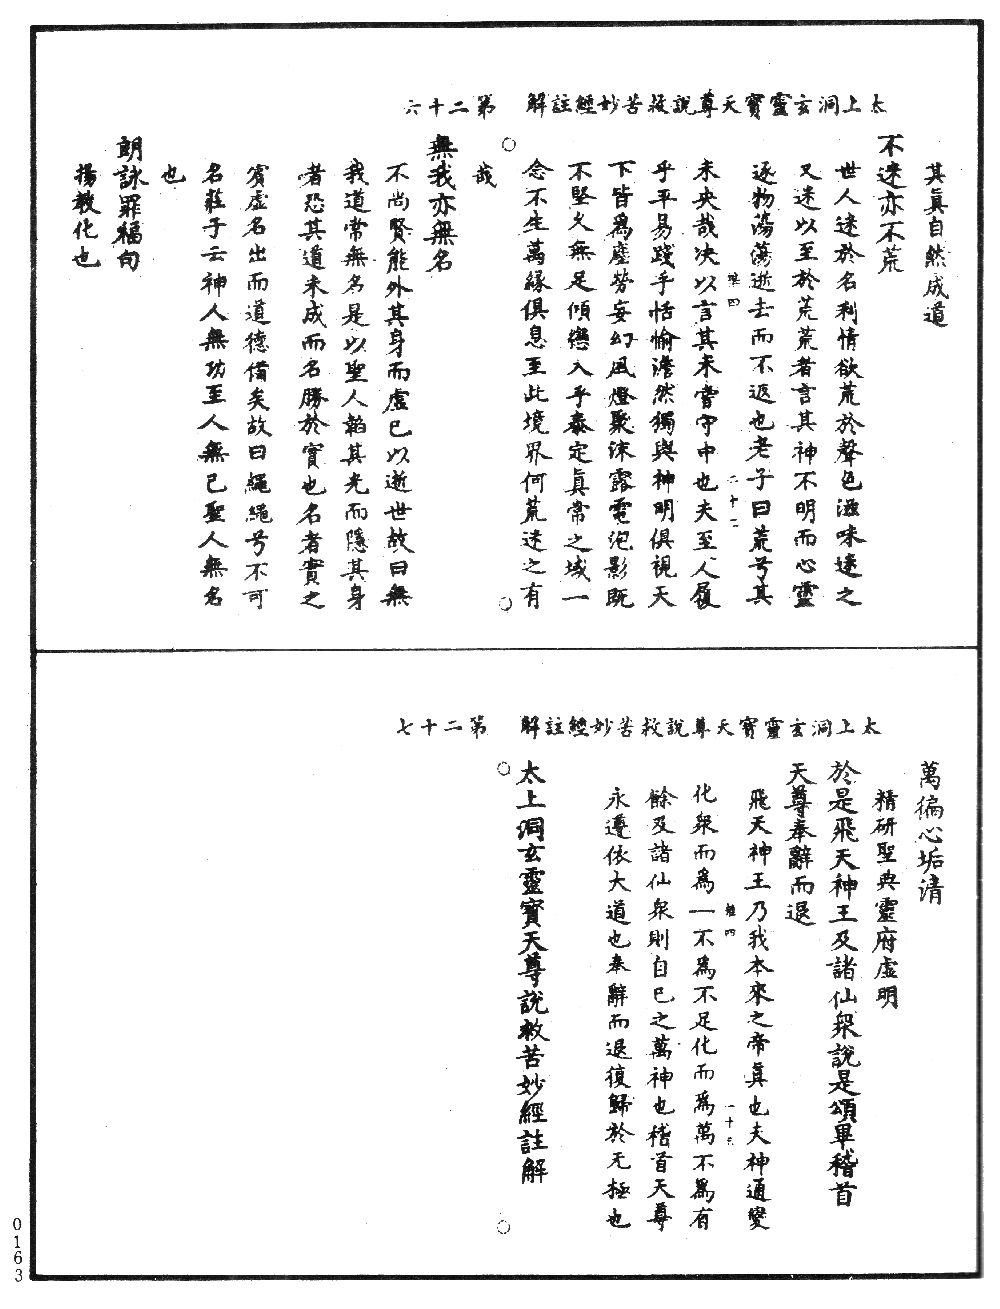 太上洞玄靈寶天尊說救苦妙經註解　第二十六
其真自然成道
不迷亦不荒
世人迷於名利情欲荒於聲色滋味迷之
又迷以至於荒荒者言其神不明而心靈
逐物蕩蕩逝去而不返也老子曰荒兮其
未央哉决以言其未嘗守中也夫至人履
乎平易踐乎恬愉澹然獨與神明俱視天
下皆爲塵勞妄幻風燈聚沫露電泡影旣
不堅久無足傾戀入乎泰定真常之域一
念不生萬緣俱息至此境界何荒迷之有
哉
無我亦無名
不尚賢能外其身而虛已以遊世故曰無
我道常無名是以聖人韜其光而隱其身
者恐其道未成而名勝於實也名者實之
賓虛名出而道德備矣故曰繩繩兮不可
名莊子云神人無功至人無已聖人無名
也
朗詠罪福句
揚教化也
太上洞玄靈寶天尊說救苦妙經註解　第二十七
萬徧心垢清
精研聖典靈府虛明
於是飛天神王及諸仙衆說是頌畢稽首
天尊奉辭而退
飛天神王乃我本來之帝真也夫神通變
化衆而爲一不爲不足化而爲萬不爲有
餘及諸仙衆則自已之萬神也稽首天尊
永遵依大道也奉辭而退復歸於无極也
太上洞玄靈寶天尊說救苦妙經註解
0163